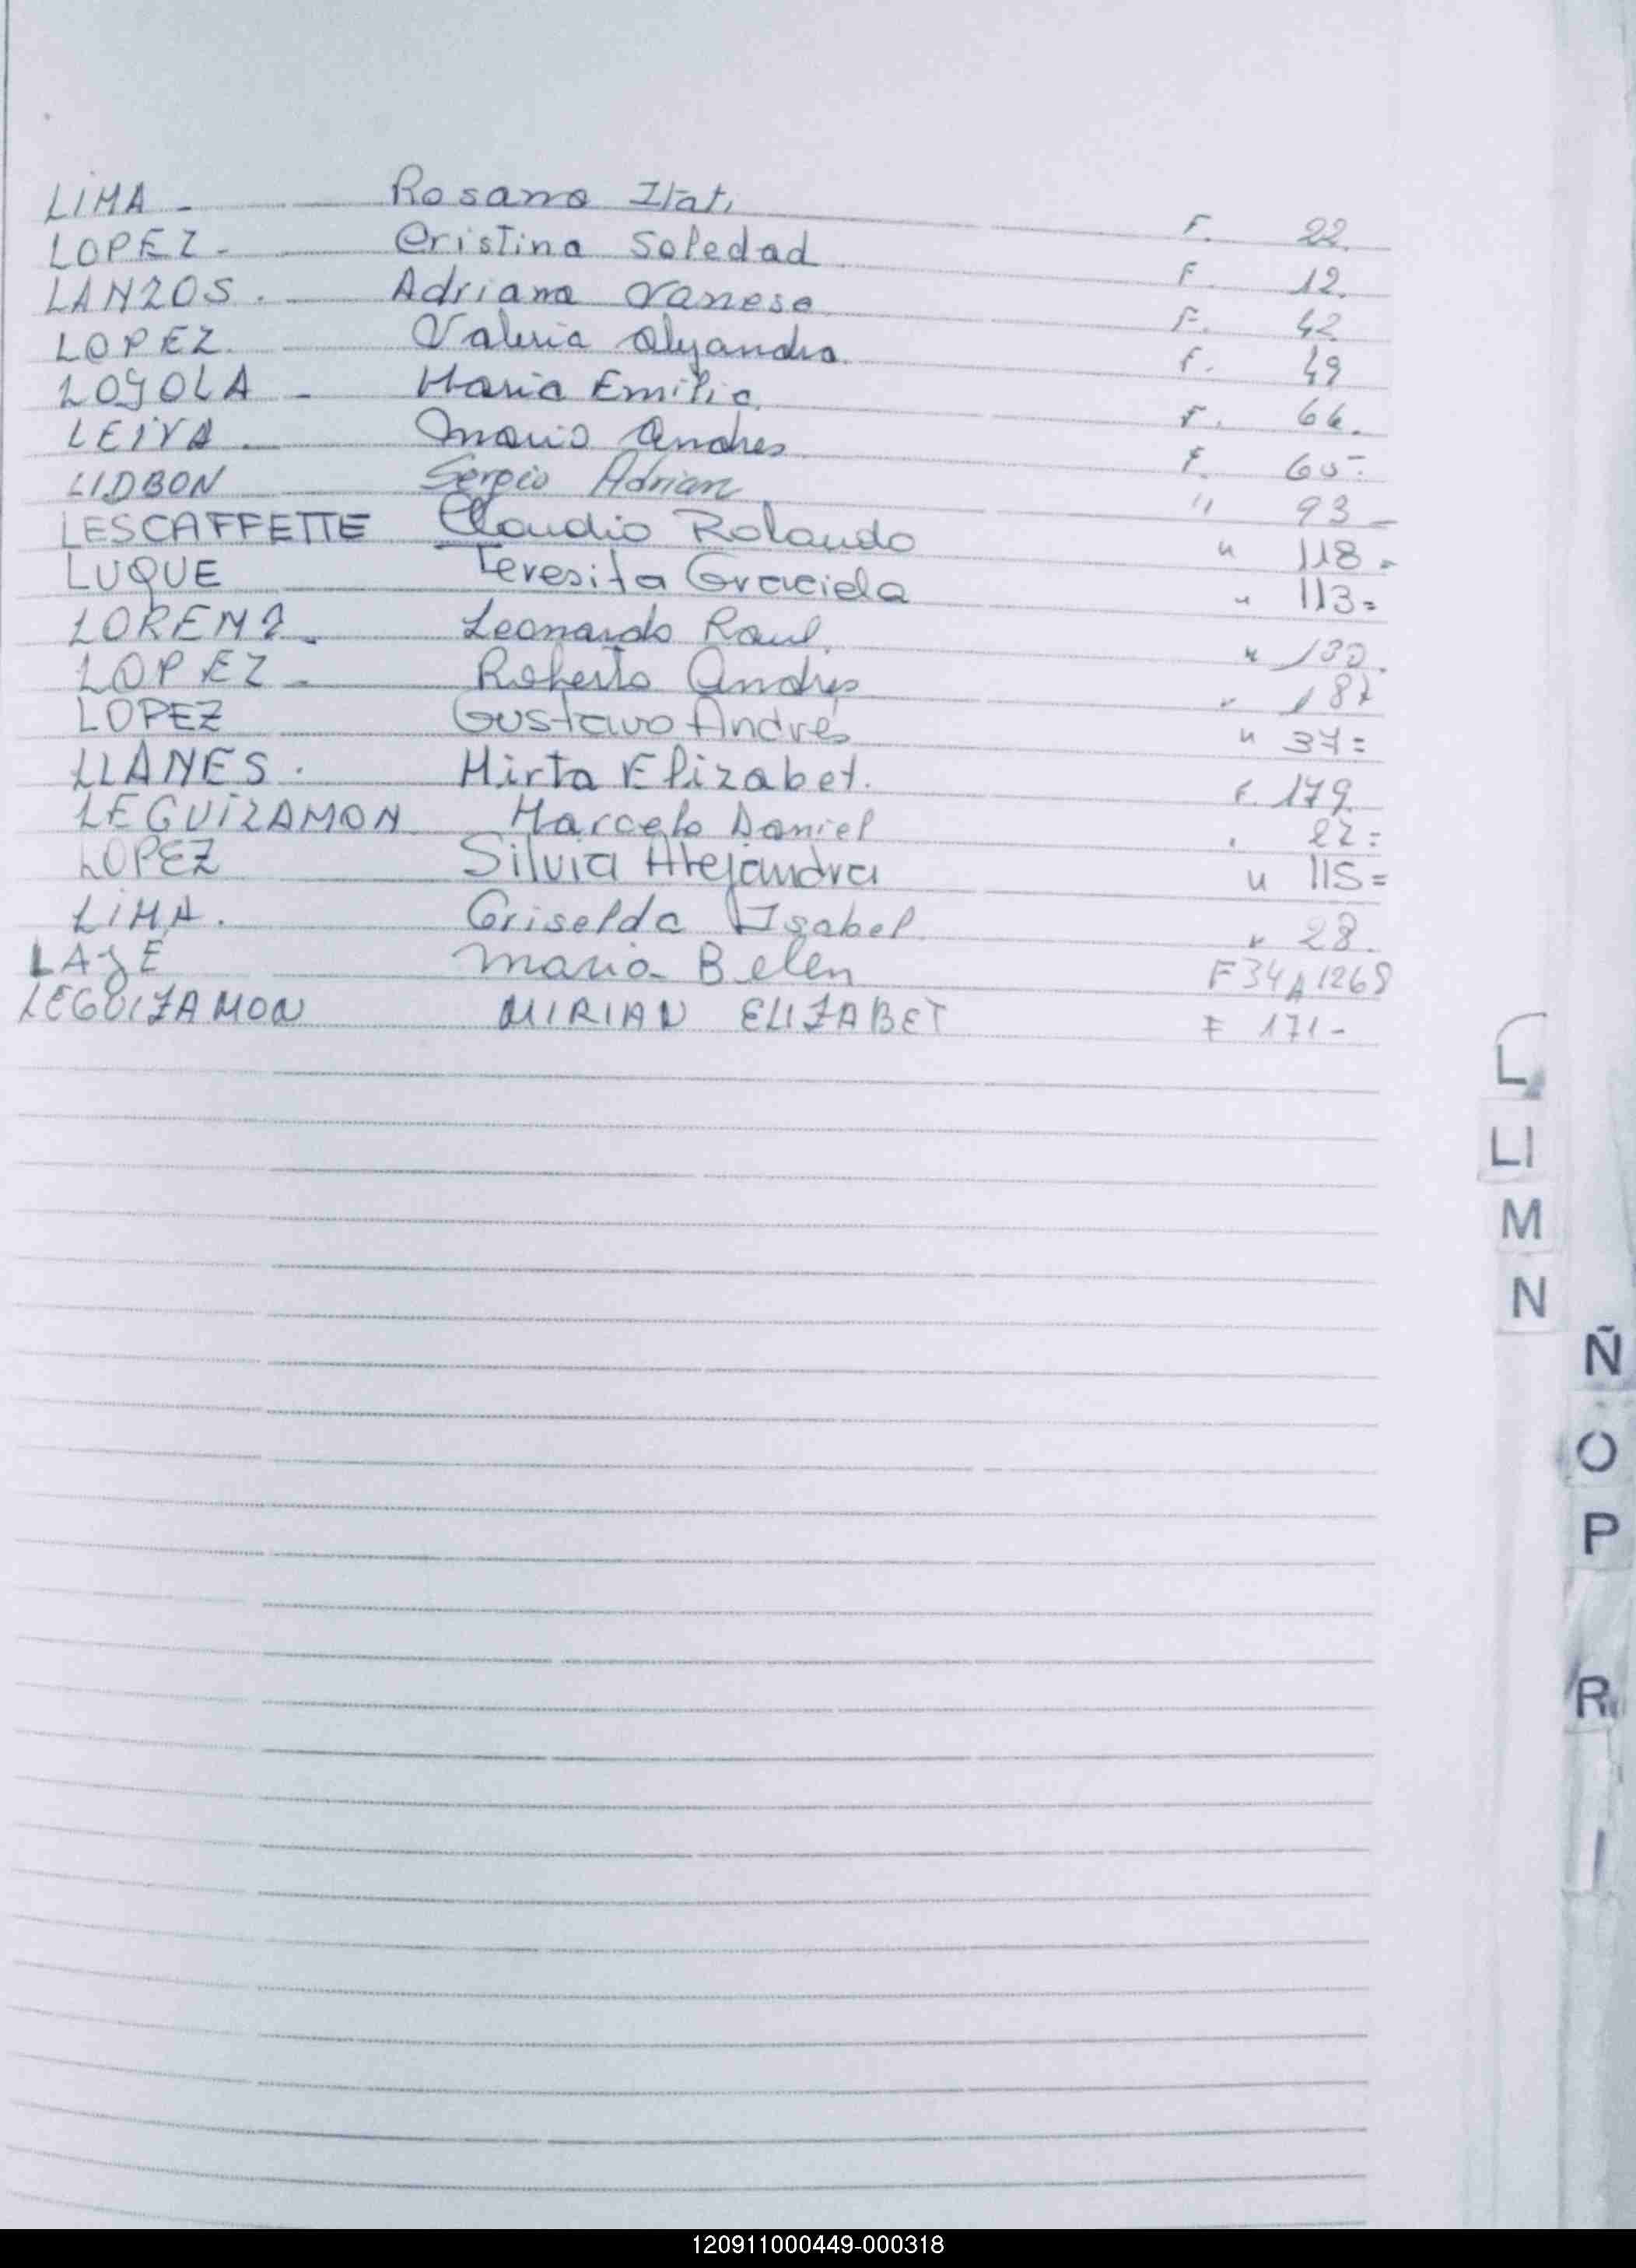 LIMA - Rosana Itati F. 22.
LOPEZ - Cristina Soledad F. 12.
LANZOS. Adriana Vanesa F. 42
LOPEZ. Valeria Alejandra F. 49
LOYOLA - Maria Emilia F. 66.
LEIVA. Mario Andres F.
LIDBON Sergio Adrian " 93 -
LESCAFFETTE Claudio Rolando " 118 =
LUQUE Teresita Graciela " 113 =
LORENZ - Leonardo Raul "
LOPEZ - Roberto Andres " 187
LOPEZ Gustavo Andrés " 37 =
LLANES. Mirta Elizabet. F. 179
LEGUIZAMON Marcelo Daniel " 27 =
LOPEZ Silvia Alejandra " 115 =
LIMA. Griselda Isabel " 28.
LAJE Maria Belen F 34 A 1268
LEGUIZAMON MIRIAN ELIZABET F 171 -
L
LI
M
N
Ñ
O
P
R
120911000449-000318